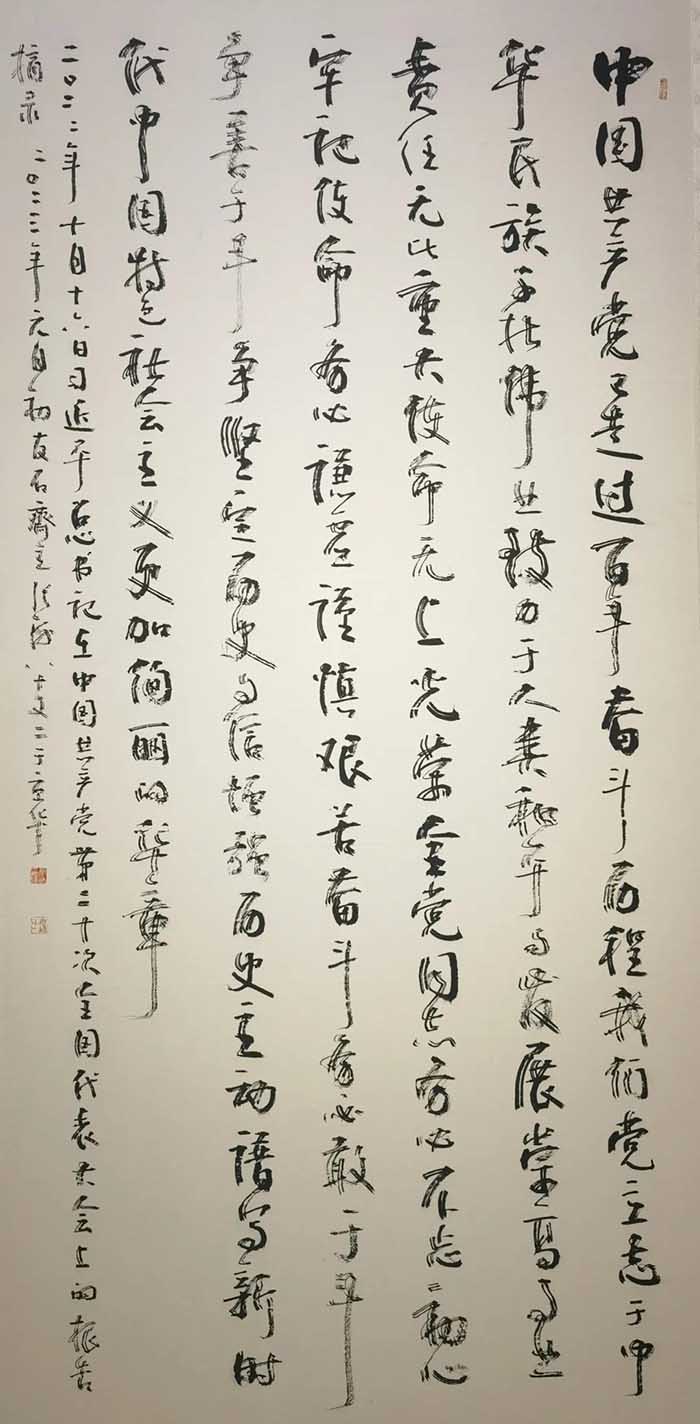 中国共产党已走过百年奋斗历程我们党立志于中
华民族千秋伟业致力于人类和平与发展崇高事业
责任无比重大使命无上光荣全党同志务必不忘初心
牢记使命务必谦虚谨慎艰苦奋斗务必敢于斗
争善于斗争坚定历史自信增强历史主动谱写新时
代中国特色社会主义更加绚丽的华章
二〇二二年十月十六日习近平总书记在中国共产党第二十次全国代表大会上的报告
摘录 二〇二三年元月初友石齋主八十又二于京华